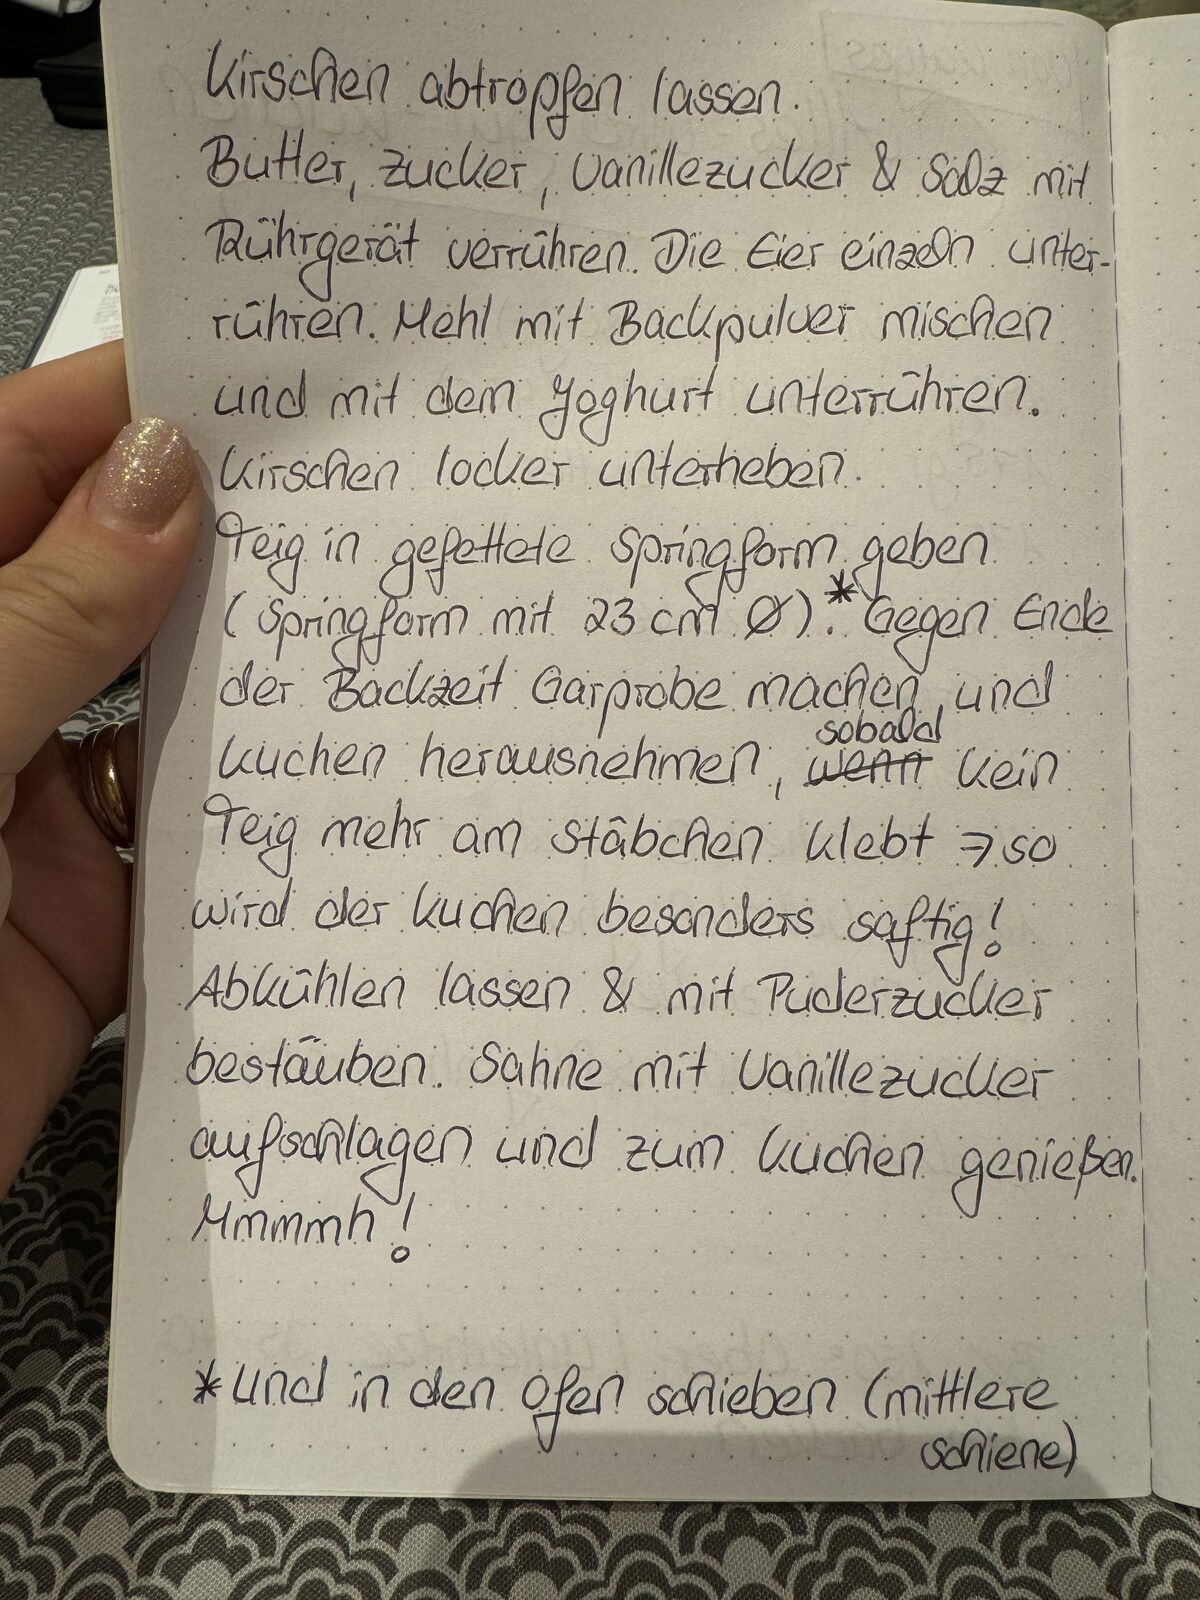 Kirschen abtropfen lassen.
Butter, Zucker, Vanillezucker & Salz mit
Rührgerät verrühren. Die Eier einzeln unter-
rühren. Mehl mit Backpulver mischen
und mit dem Joghurt unterrühren.
Kirschen locker unterheben.
Teig in gefettete Springform geben
(Springform mit 23 cm Ø).* Gegen Ende
der Backzeit Garprobe machen und
sobald
Kuchen herausnehmen, wenn kein
Teig mehr am Stäbchen klebt → so
wird der Kuchen besonders saftig!
Abkühlen lassen & mit Puderzucker
bestäuben. Sahne mit Vanillezucker
aufschlagen und zum Kuchen genießen.
Mmmmh!
*und in den Ofen schieben (mittlere
Schiene)